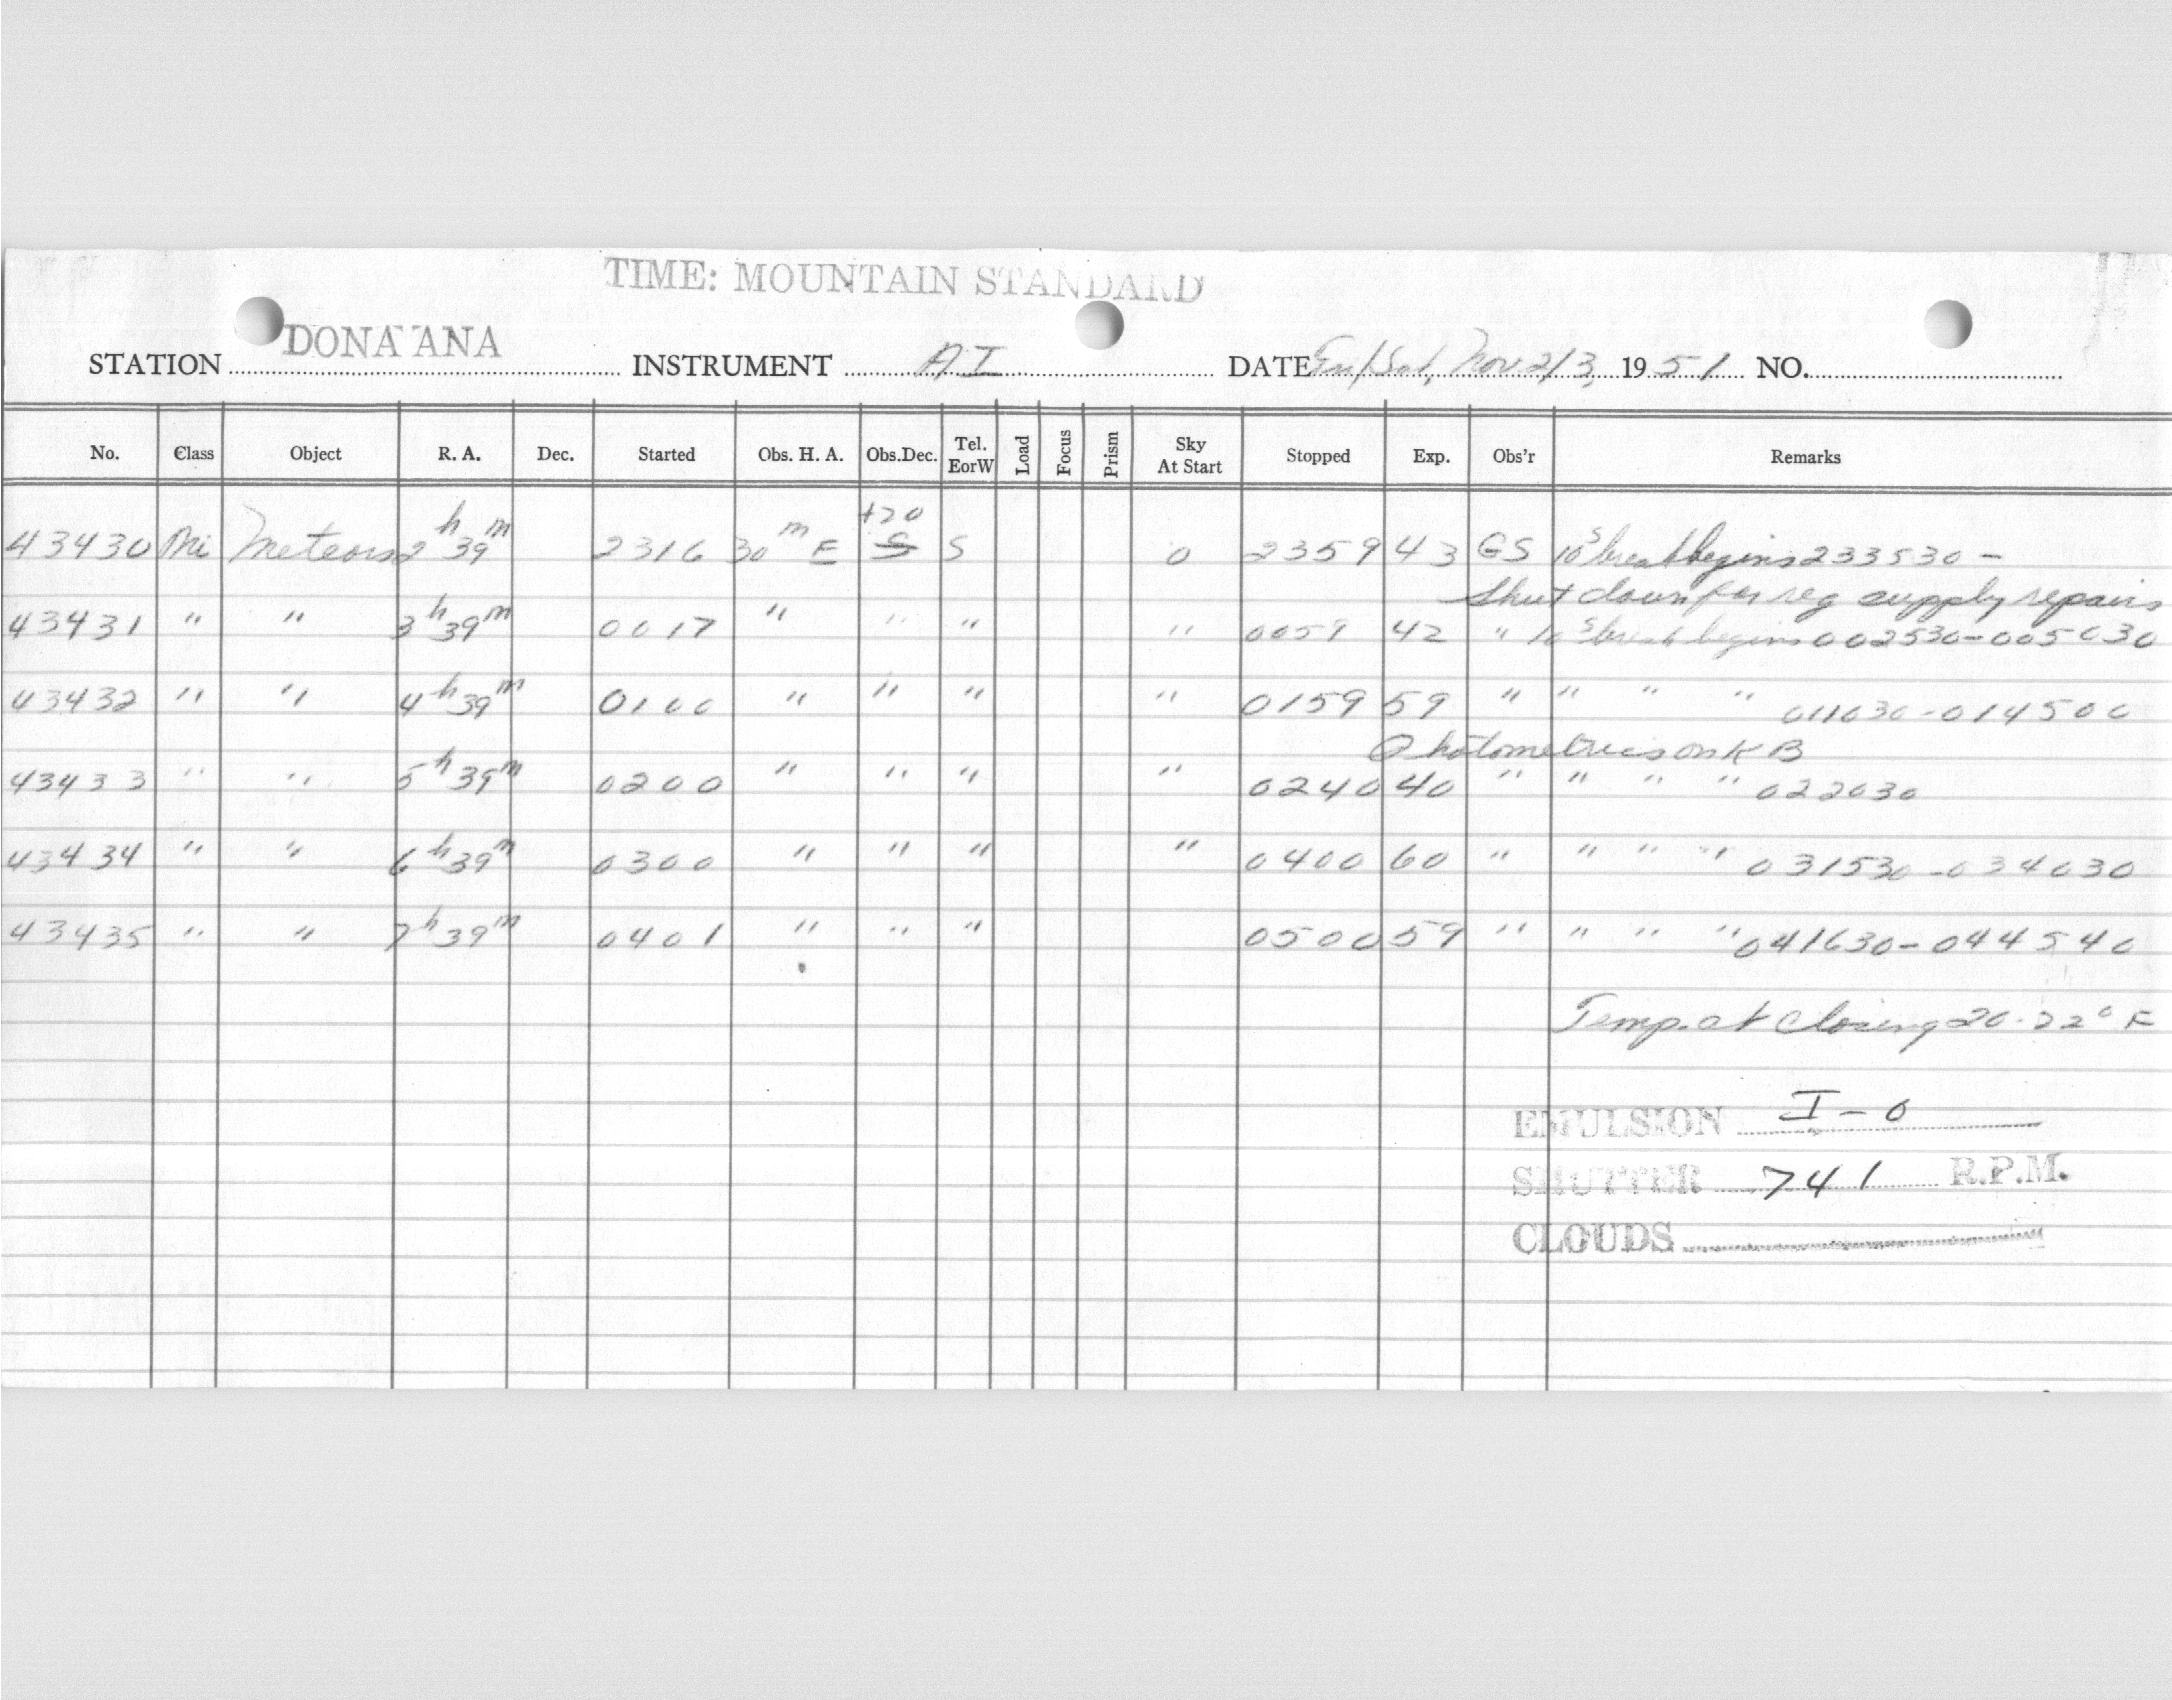 TIME: MOUNTAIN STANDARD
STATION DONA ANA INSTRUMENT AI DATE Fri/Sat, Nov 2/3, 1951 NO.
No. Class Object R. A. Dec. Started Obs. H. A. Obs.Dec. Tel. EorW Load Focus Prism Sky At Start Stopped Exp. Obs'r Remarks
+20
43430 Mi Meteors 2h 39m 2316 30m E S S 0 2359 43 GS 10s break begins 233530 -
Shut down for reg supply repairs
43431 " " 3h 39m 0017 " " " " 0059 42 " 10s break begins 002530-005030
43432 " " 4h 39m 0100 " " " " 0159 59 " " " " 011030-014500
Photometrics on KB
43433 " " 5h 39m 0200 " " " " 0240 40 " " " " 022030
43434 " " 6h 39m 0300 " " " " 0400 60 " " " " 031530-034030
43435 " " 7h 39m 0401 " " " 0500 59 " " " " 041630-044540
Temp. at closing 20-22° F
EMULSION I-0
SHUTTER 741 R.P.M.
CLOUDS